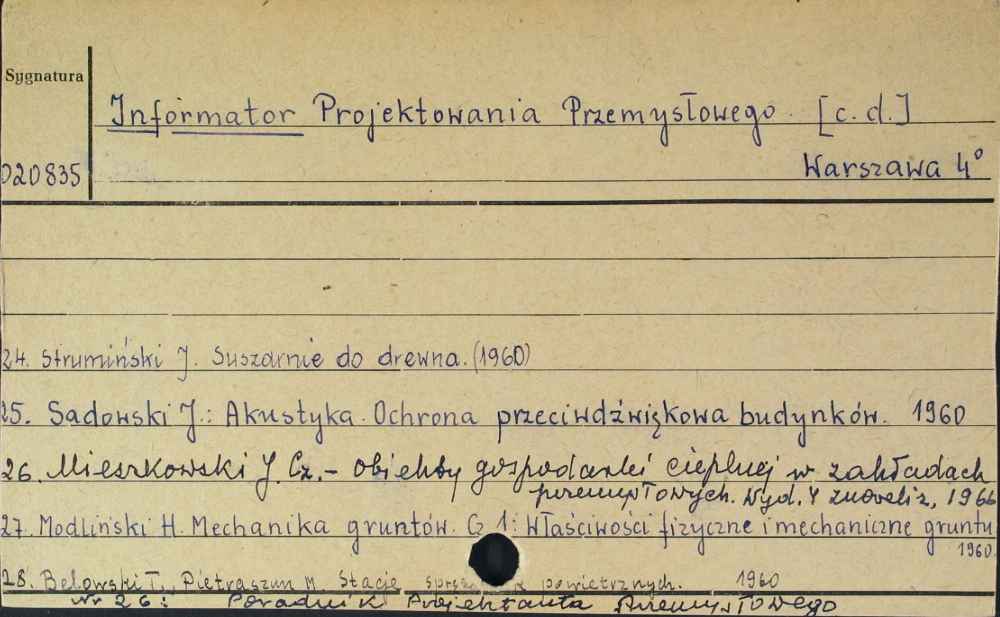 Sygnatura
Informator Projektowania Przemysłowego. [c.d.]
020835
Warszawa 4°
24. Strumiński J. Suszarnie do drewna. (1960)
25. Sadowski J.: Akustyka. Ochrona przeciwdźwiękowa budynków. 1960
26. Mieszkowski J. Cz. - Obiekty gospodarki cieplnej w zakładach
przemysłowych. Wyd. 4 znoveliz, 1966
27. Modliński H. Mechanika gruntów. Cz 1: Właściwości fizyczne i mechaniczne gruntu
1960
28. Belowski T., Pietraszun M. Stacje powietrznych. 1960
Nr 26: Poradnik Projektanta Przemysłowego